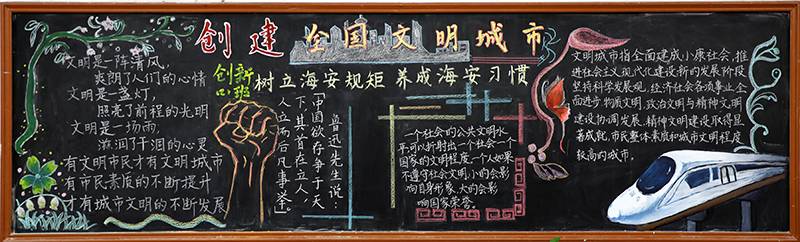 创建全国文明城市
创新
口班
树立海安规矩 养成海安习惯
文明是一阵清风,
爽朗了人们的心情
文明是一盏灯,
照亮了前程的光明
文明是一场雨,
滋润了干涸的心灵
有文明市民才有文明城市
有市民素质的不断提升
才有城市文明的不断发展
鲁迅先生说:
“中国欲存争于天
下,其首在立人,
人立而后凡事举。”
一个社会的公共文明水
平可以折射出一个社会一个
国家的文明程度,一个人如果
不遵守社会文明,小的会影
响自身形象、大的会影
响国家荣誉。
文明城市指全面建成小康社会,推
进社会主义现代化建设新的发展阶段
坚持科学发展观,经济社会各项事业
全面进步,物质文明,政治文明与精神文明
建设协调发展,精神文明建设取得显
著成就,市民整体素质和城市文明程度
较高的城市。